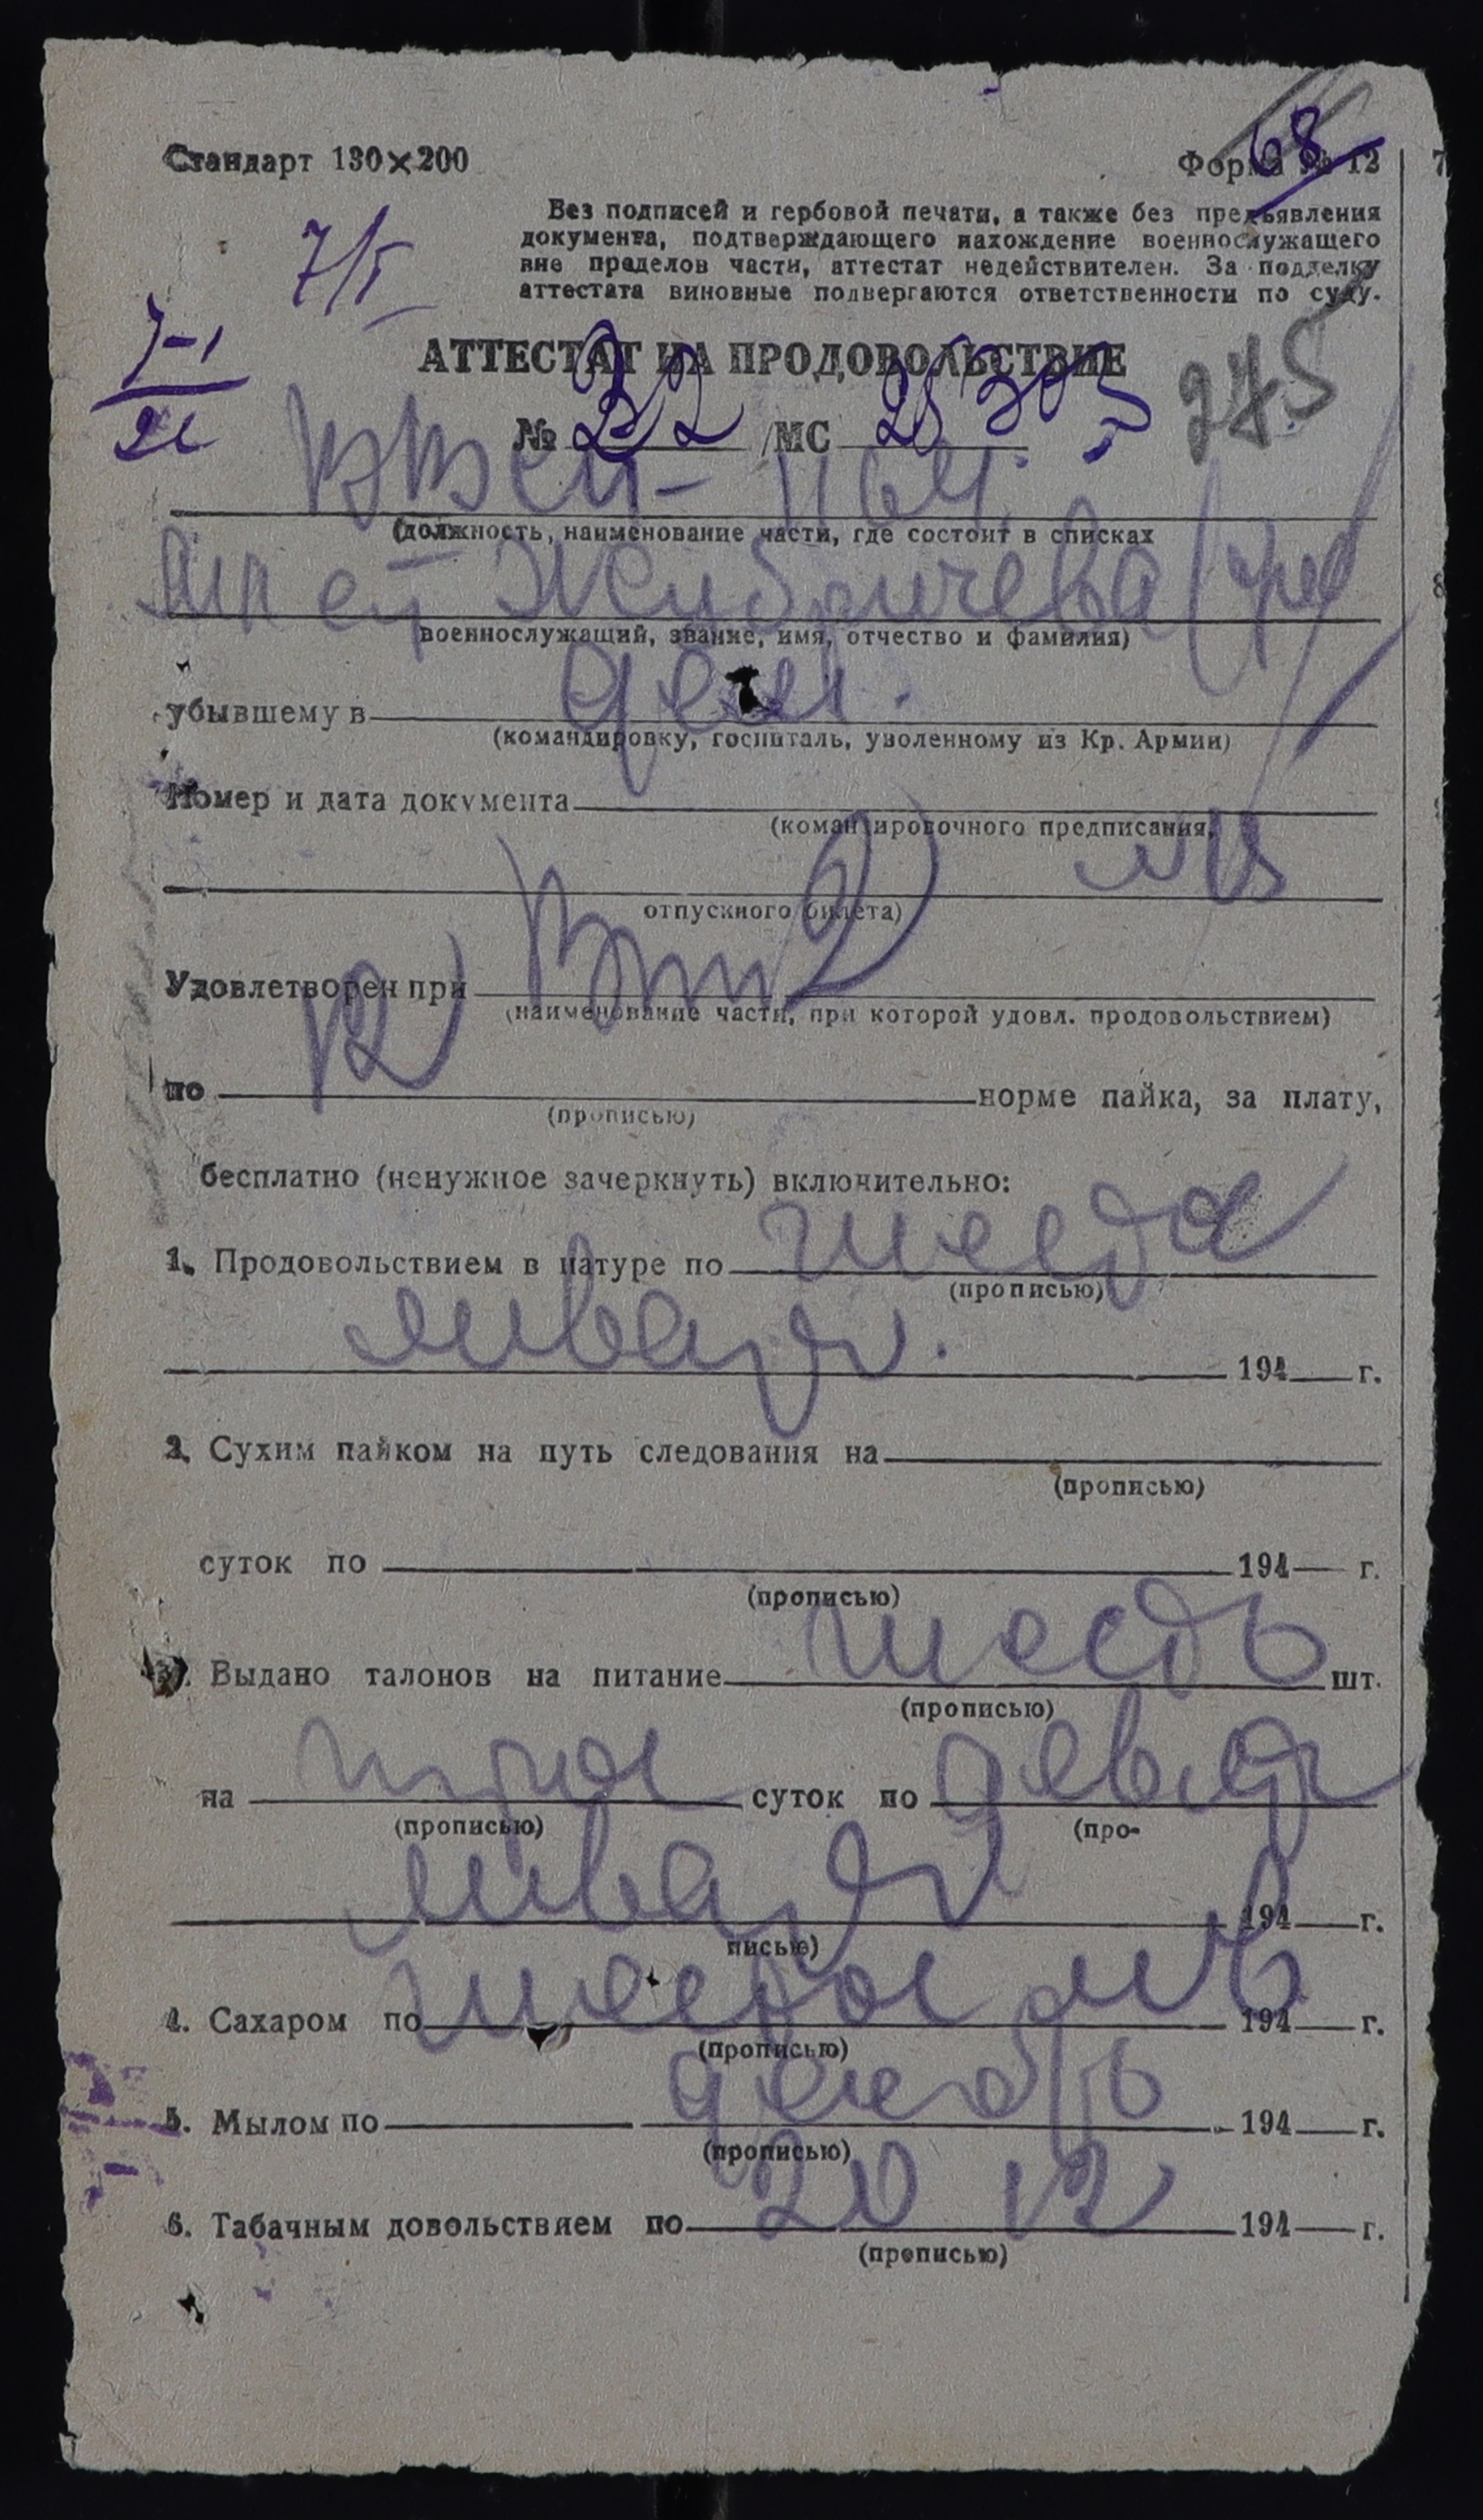 Стандарт 130×200
Форма № 12
68
Без подписей и гербовой печати, а также без предъявления
документа, подтверждающего нахождение военнослужащего
вне пределов части, аттестат недействителен. За подделку
аттестата виновные подвергаются ответственности по суду.
7/I
7-1
АТТЕСТАТ НА ПРОДОВОЛЬСТВИЕ
275
№ 22 /МС
(должность, наименование части, где состоит в списках
военнослужащий, звание, имя, отчество и фамилия)
убывшему в
(командировку, госпиталь, уволенному из Кр. Армии)
Номер и дата документа
(командировочного предписания,
отпускного билета)
Удовлетворен при
(наименование части, при которой удовл. продовольствием)
по 12 норме пайка, за плату,
(прописью)
бесплатно (ненужное зачеркнуть) включительно:
1. Продовольствием в натуре по шесто
(прописью)
января. 194 г.
2. Сухим пайком на путь следования на
(прописью)
суток по 194 г.
(прописью)
3. Выдано талонов на питание шесть шт.
(прописью)
на трое суток по девято
(прописью) (про-
января 194 г.
писью)
4. Сахаром по шестое янв 194 г.
(прописью)
5. Мылом по декабрь 194 г.
(прописью)
6. Табачным довольствием по 20 12 194 г.
(прописью)